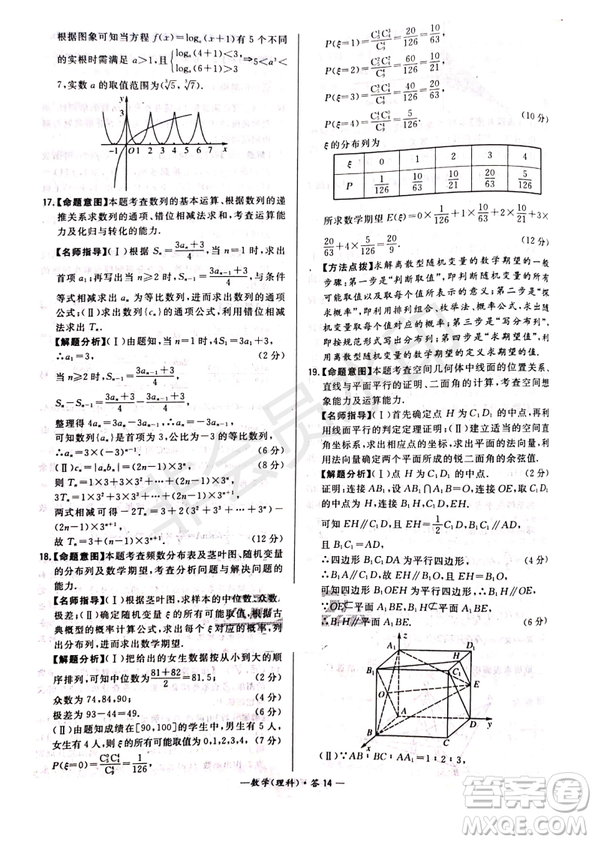 根据图象可知当方程 f(x)=logₐ(x+1)有 5 个不同
的实根时需满足 a>1,且{logₐ(4+1)<3, logₐ(6+1)>3 ⇒5<a³<
7,实数 a 的取值范围为(∛5,∛7).
y
3
-1 O 1 2 3 4 5 6 7 x
17.【命题意图】本题考查数列的基本运算、根据数列的递
推关系求数列的通项、错位相减法求和,考查运算能
力及化归与转化的能力.
【名师指导】(Ⅰ)根据 Sₙ=(3aₙ+3)/4,令 n=1,求出
首项 a₁;再写出当 n≥2 时,Sₙ₋₁=(3aₙ₋₁+3)/4,与已知
等式相减求出 aₙ 为等比数列,进而求出数列的通项
公式;(Ⅱ)求出数列{cₙ}的通项公式,利用错位相减
法求出 Tₙ.
【解题分析】(Ⅰ)由题知,当 n=1 时,S₁=(3a₁+3)/4,
∴a₁=3. (2 分)
当 n≥2 时,Sₙ₋₁=(3aₙ₋₁+3)/4,
Sₙ-Sₙ₋₁=(3aₙ-3aₙ₋₁)/4, (4 分)
整理得 4aₙ=3aₙ-3aₙ₋₁,∴aₙ=-3aₙ₋₁,
可知数列{aₙ}为等比数列,首项为 3,公比为-3,
∴aₙ=3×(-3)ⁿ⁻¹. (6 分)
(Ⅱ)cₙ=|aₙbₙ|=(2n-1)×3ⁿ, (8 分)
则 Tₙ=1×3+3×3²+5×3³+…+(2n-1)×3ⁿ,
3Tₙ=1×3²+3×3³+5×3⁴+…+(2n-1)×3ⁿ⁺¹,
两式相减可得-2Tₙ=1×3+2×3²+2×3³+…+2×3ⁿ
-(2n-1)×3ⁿ⁺¹,
∴Tₙ=(n-1)×3ⁿ⁺¹+3. (12 分)
18.【命题意图】本题考查频数分布表及茎叶图、随机变量
的分布列及数学期望,考查分析问题与解决问题
的能力.
【名师指导】(Ⅰ)根据茎叶图,求出样本的中位数、众数、
极差;(Ⅱ)确定随机变量 ξ 的所有可能取值,根据古
典概型的概率计算公式,求出每个 ξ 对应的概率,列
出分布列,进而求出数学期望.
【解题分析】(Ⅰ)把给出的女生数据按从小到大的顺
序排列,可知中位数为(81+82)/2=81.5; (2 分)
众数为 74,84,90; (4 分)
极差为 93-44=49. (6 分)
(Ⅱ)由题知成绩在[90,100]的学生中,男生有 5 名,
女生有 4 名,ξ 的所有可能取值为 0,1,2,3,4, (7 分)
P(ξ=0)=C⁰₄C⁴₅/C⁴₉=5/126,
P(ξ=1)=C¹₄C³₅/C⁴₉=40/126=20/63,
P(ξ=2)=C²₄C²₅/C⁴₉=60/126=10/21,
P(ξ=3)=C³₄C¹₅/C⁴₉=20/126=10/63,
P(ξ=4)=C⁴₄C⁰₅/C⁴₉=1/126. (10 分)
ξ 的分布列为
ξ 0 1 2 3 4
P 5/126 20/63 10/21 10/63 1/126
所求数学期望 E(ξ)=0×
(12 分)
【方法点拨】求解离散型随机变量的数学期望的一般
步骤:第一步是“判断取值”,即判断随机变量的所有
可能取值以及取每个值所表示的意义;第二步是“探
求概率”,即利用排列组合、枚举法、概率公式,求出随
机变量取每个值时的概率;第三步是“写分布列”,即
按规范形式写出分布列;第四步是“求期望值”,即利
用离散型随机变量的数学期望的定义求期望值.
19.【命题意图】本题考查空间几何体中线面的位置关系、
直线与平面平行的证明、二面角的计算,考查空间想
象能力及运算能力.
【名师指导】(Ⅰ)首先确定点 H 为 C₁D₁ 的中点,再利
用线面平行的判定定理证明;(Ⅱ)建立适当的空间直
角坐标系,求出相应点的坐标,求出平面的法向量,根
据向量夹角求出两个平面所成的锐二面角的余弦值.
【解题分析】(Ⅰ)点 H 为 C₁D₁ 的中点.
证明:连接 AB₁,设 AB₁∩A₁B=O,连接 EH,OE,DC₁.
可知 EH∥DC₁,EH=½DC₁,
∴四边形 B₁C₁DA 为平行四边形, (4 分)
∴四边形 OB₁HE 为平行四边形,∴B₁H∥OE,
∵OE⊂平面 A₁BE,B₁H⊄平面 A₁BE,
∴B₁H∥平面 A₁BE. (6 分)
z
A₁
B₁
C₁
O
E
A
B
C
x
y
(Ⅱ)∵AB⊥AC,∴AB⊥AD,
—数学(理科)·答 14—
非会员水印
作业帮
www.zuoyebang.com